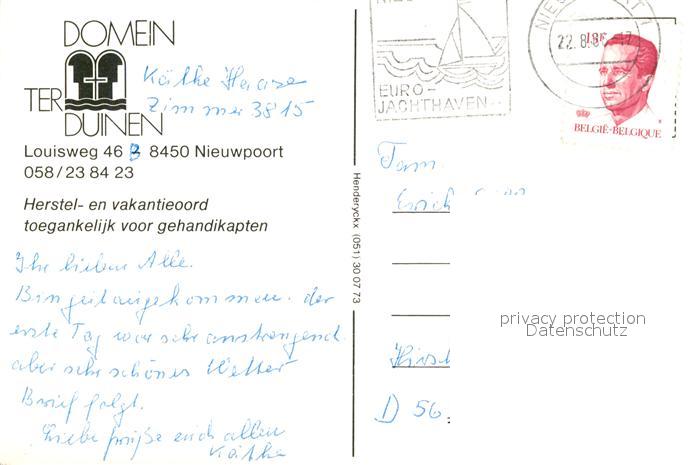 DOMEIN
TER
DUINEN
Käthe Haase
Zimmer 3815
Louisweg 46 B 8450 Nieuwpoort
058/23 84 23
Herstel- en vakantieoord
toegankelijk voor gehandikapten
Ihr lieben Alle.
Bin gut angekommen. der
erste Tag war sehr anstrengend.
aber sehr schönes Wetter
Brief folgt.
Liebe Grüße euch allen
Käthe
Henderyckx (051) 30 07 73
EURO-
JACHTHAVEN
22.8.
BELGIË-BELGIQUE
Fam.
Erich
Hirsch
D 56
privacy protection
Datenschutz